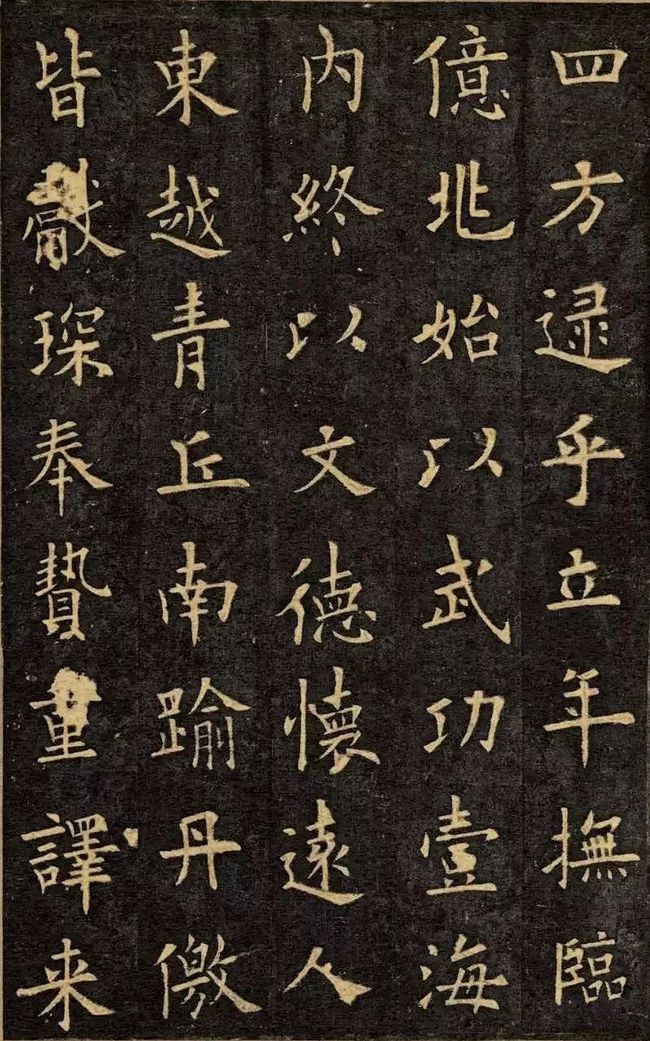 四方逯乎立年撫臨
億兆始以武功壹海
内終以文德懷遠人
東越青丘南踰丹儌
皆獻琛奉贄重譯来